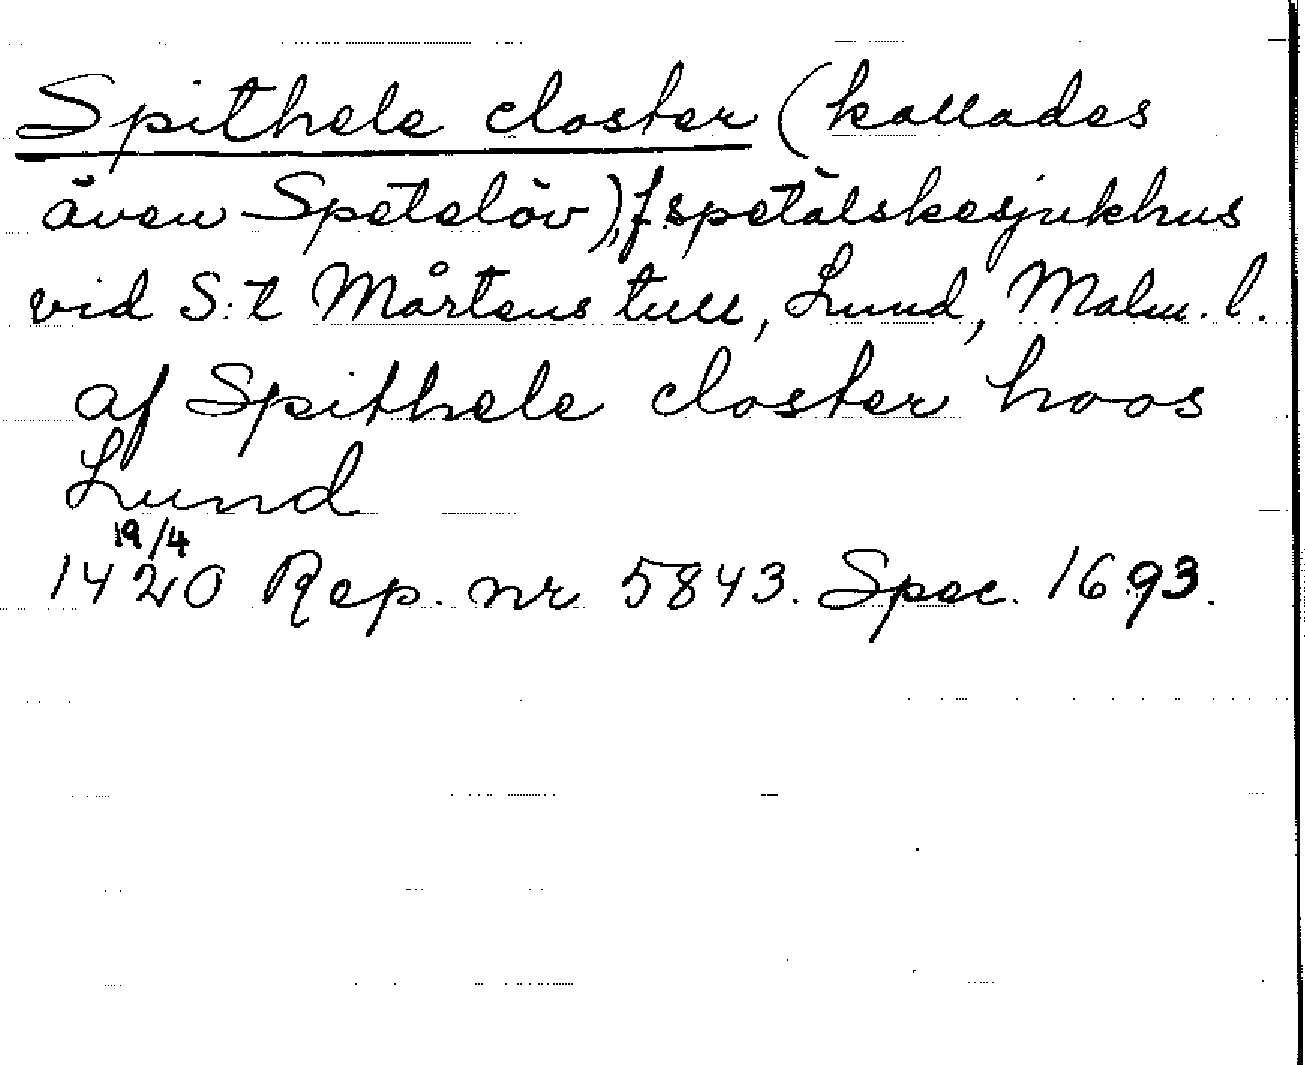 Spithele closter (kallades
även Spetelöv), f. spetälskesjukhus
vid S:t Mårtens tull, Lund, Malm. l.
af Spithele closter hoos
Lund
19/4
1420 Rep. nr 5843. Spec. 1693.